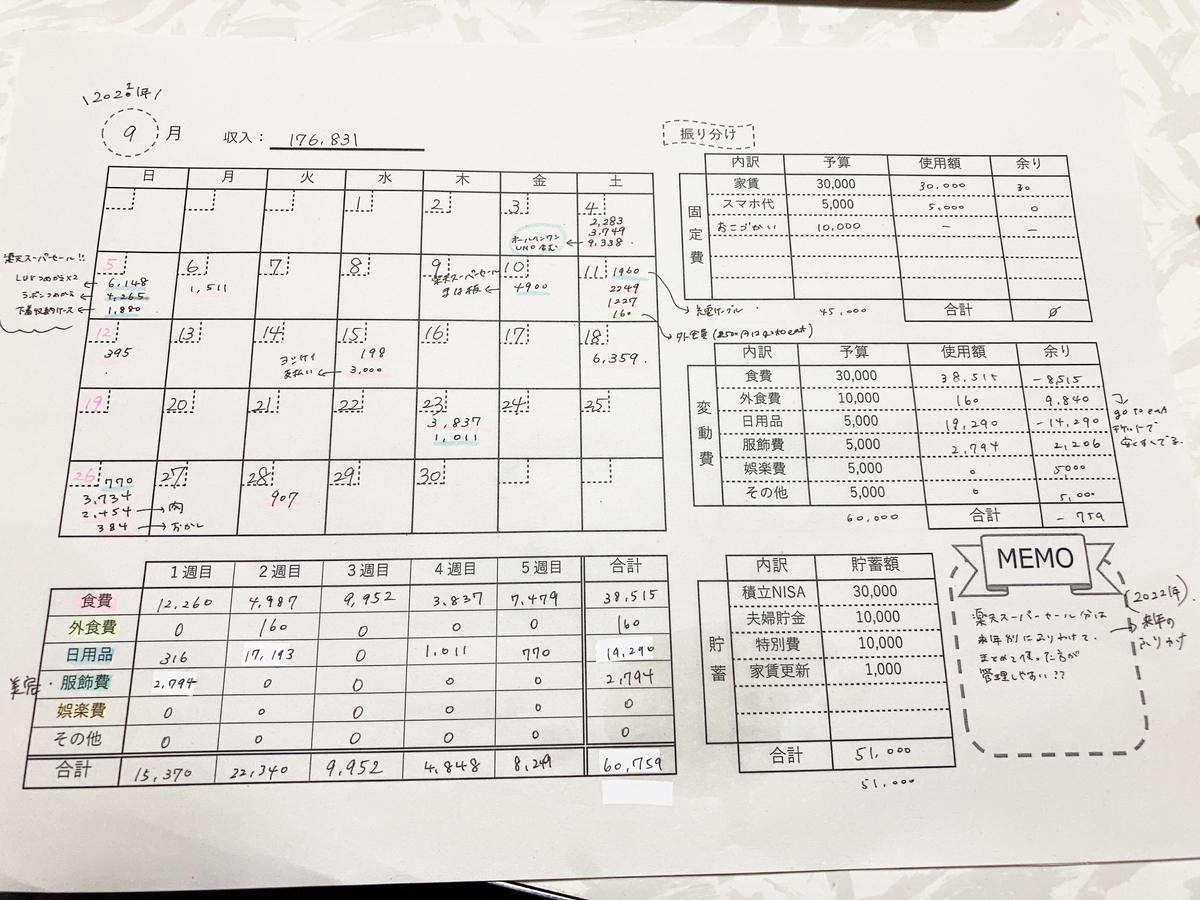 9月
収入: 176,831
日 月 火 水 木 金 土
1 2 3 4
オールインワン
UNO含む
2,283
3,749
9,338
楽天スーパーセール!!
5 6 7 8 9 10 11
6,148
4,265
1,880
1,511
楽天スーパーセール
まな板
4900
1960
2249
1227
160
12 13 14 15 16 17 18
395
ヨシケイ
支払い
198
3,000
6,359
外食費
19 20 21 22 23 24 25
3,837
1,011
26 27 28 29 30
770
3,734
2,454 → 肉
384 → おかし
907
1週目 2週目 3週目 4週目 5週目 合計
食費 12,260 4,987 9,952 3,837 7,479 38,515
外食費 0 160 0 0 0 160
日用品 316 17,193 0 1,011 770 19,290
服飾費 2,794 0 0 0 0 2,794
娯楽費 0 0 0 0 0 0
その他 0 0 0 0 0 0
合計 15,370 22,340 9,952 4,848 8,249 60,759
振り分け
固定費
内訳 予算 使用額 余り
家賃 30,000 30,000
スマホ代 5,000 5,000 0
おこづかい 10,000 - -
45,000 合計 0
変動費
内訳 予算 使用額 余り
食費 30,000 38,515 -8,515
外食費 10,000 160 9,840
日用品 5,000 19,290 -14,290
服飾費 5,000 2,794 2,206
娯楽費 5,000 0 5000
その他 5,000 0 5,000
60,000 合計 -759
go to eat
チケットで
安くすんでる
貯蓄
内訳 貯蓄額
積立NISA 30,000
夫婦貯金 10,000
特別費 10,000
家賃更新 1,000
合計 51,000
51,000
MEMO
楽天スーパーセール分は
来年別にふりわけて、
まとめて使った方が
管理しやすい??
(2022年)
来年の
ふりわけ